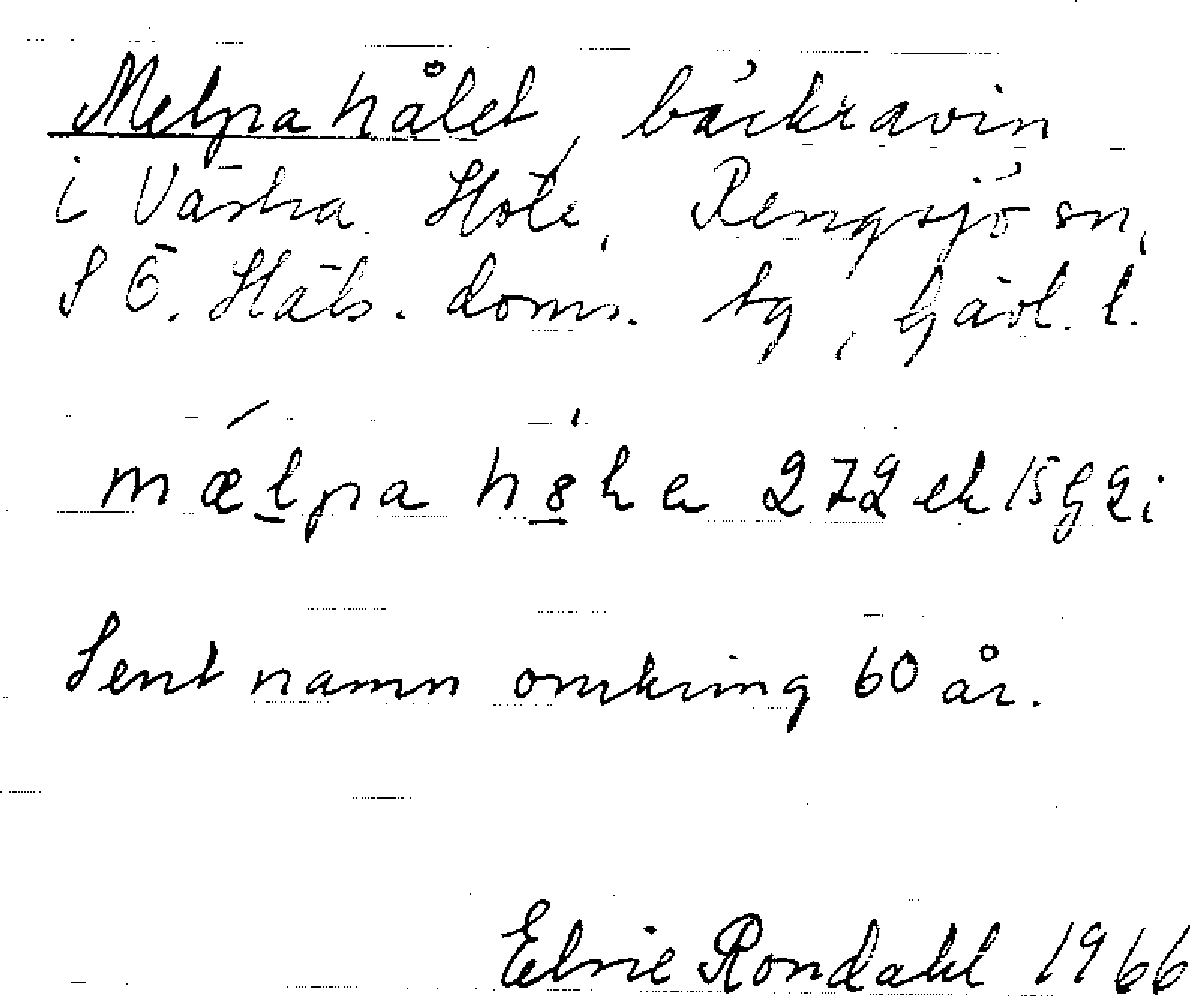 Melpahålet, bäckravin
i Västra Höle, Rengsjö sn,
S Ö. Häls. doms. tg, Gävl. l.
mælpa 272 ek 15 G 2 i
Sent namn omkring 60 år.
Elvie Rondahl 1966